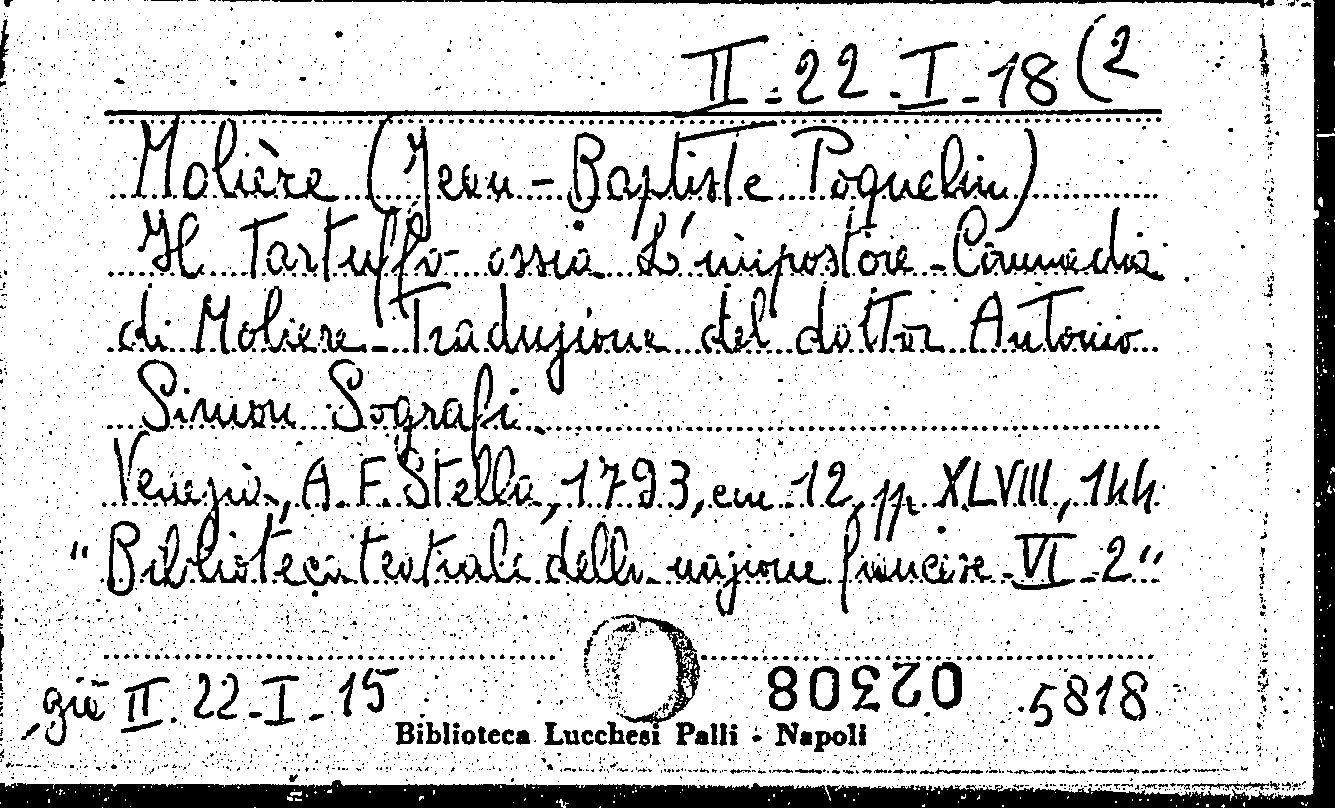 II. 22. I. 18 (2
Molière (Jean-Baptiste Poquelin)
Il Tartuffo ossia L'impostore. Commedia
di Moliere. Traduzione del dottor Antonio
Simon Sografi.
Venezia, A. F. Stella, 1793, in 12, pp. XLVIII, 144
"Biblioteca teatrale della nazione francese VI. 2"
già II. 22. I. 15
02308
5818
Biblioteca Lucchesi Palli - Napoli